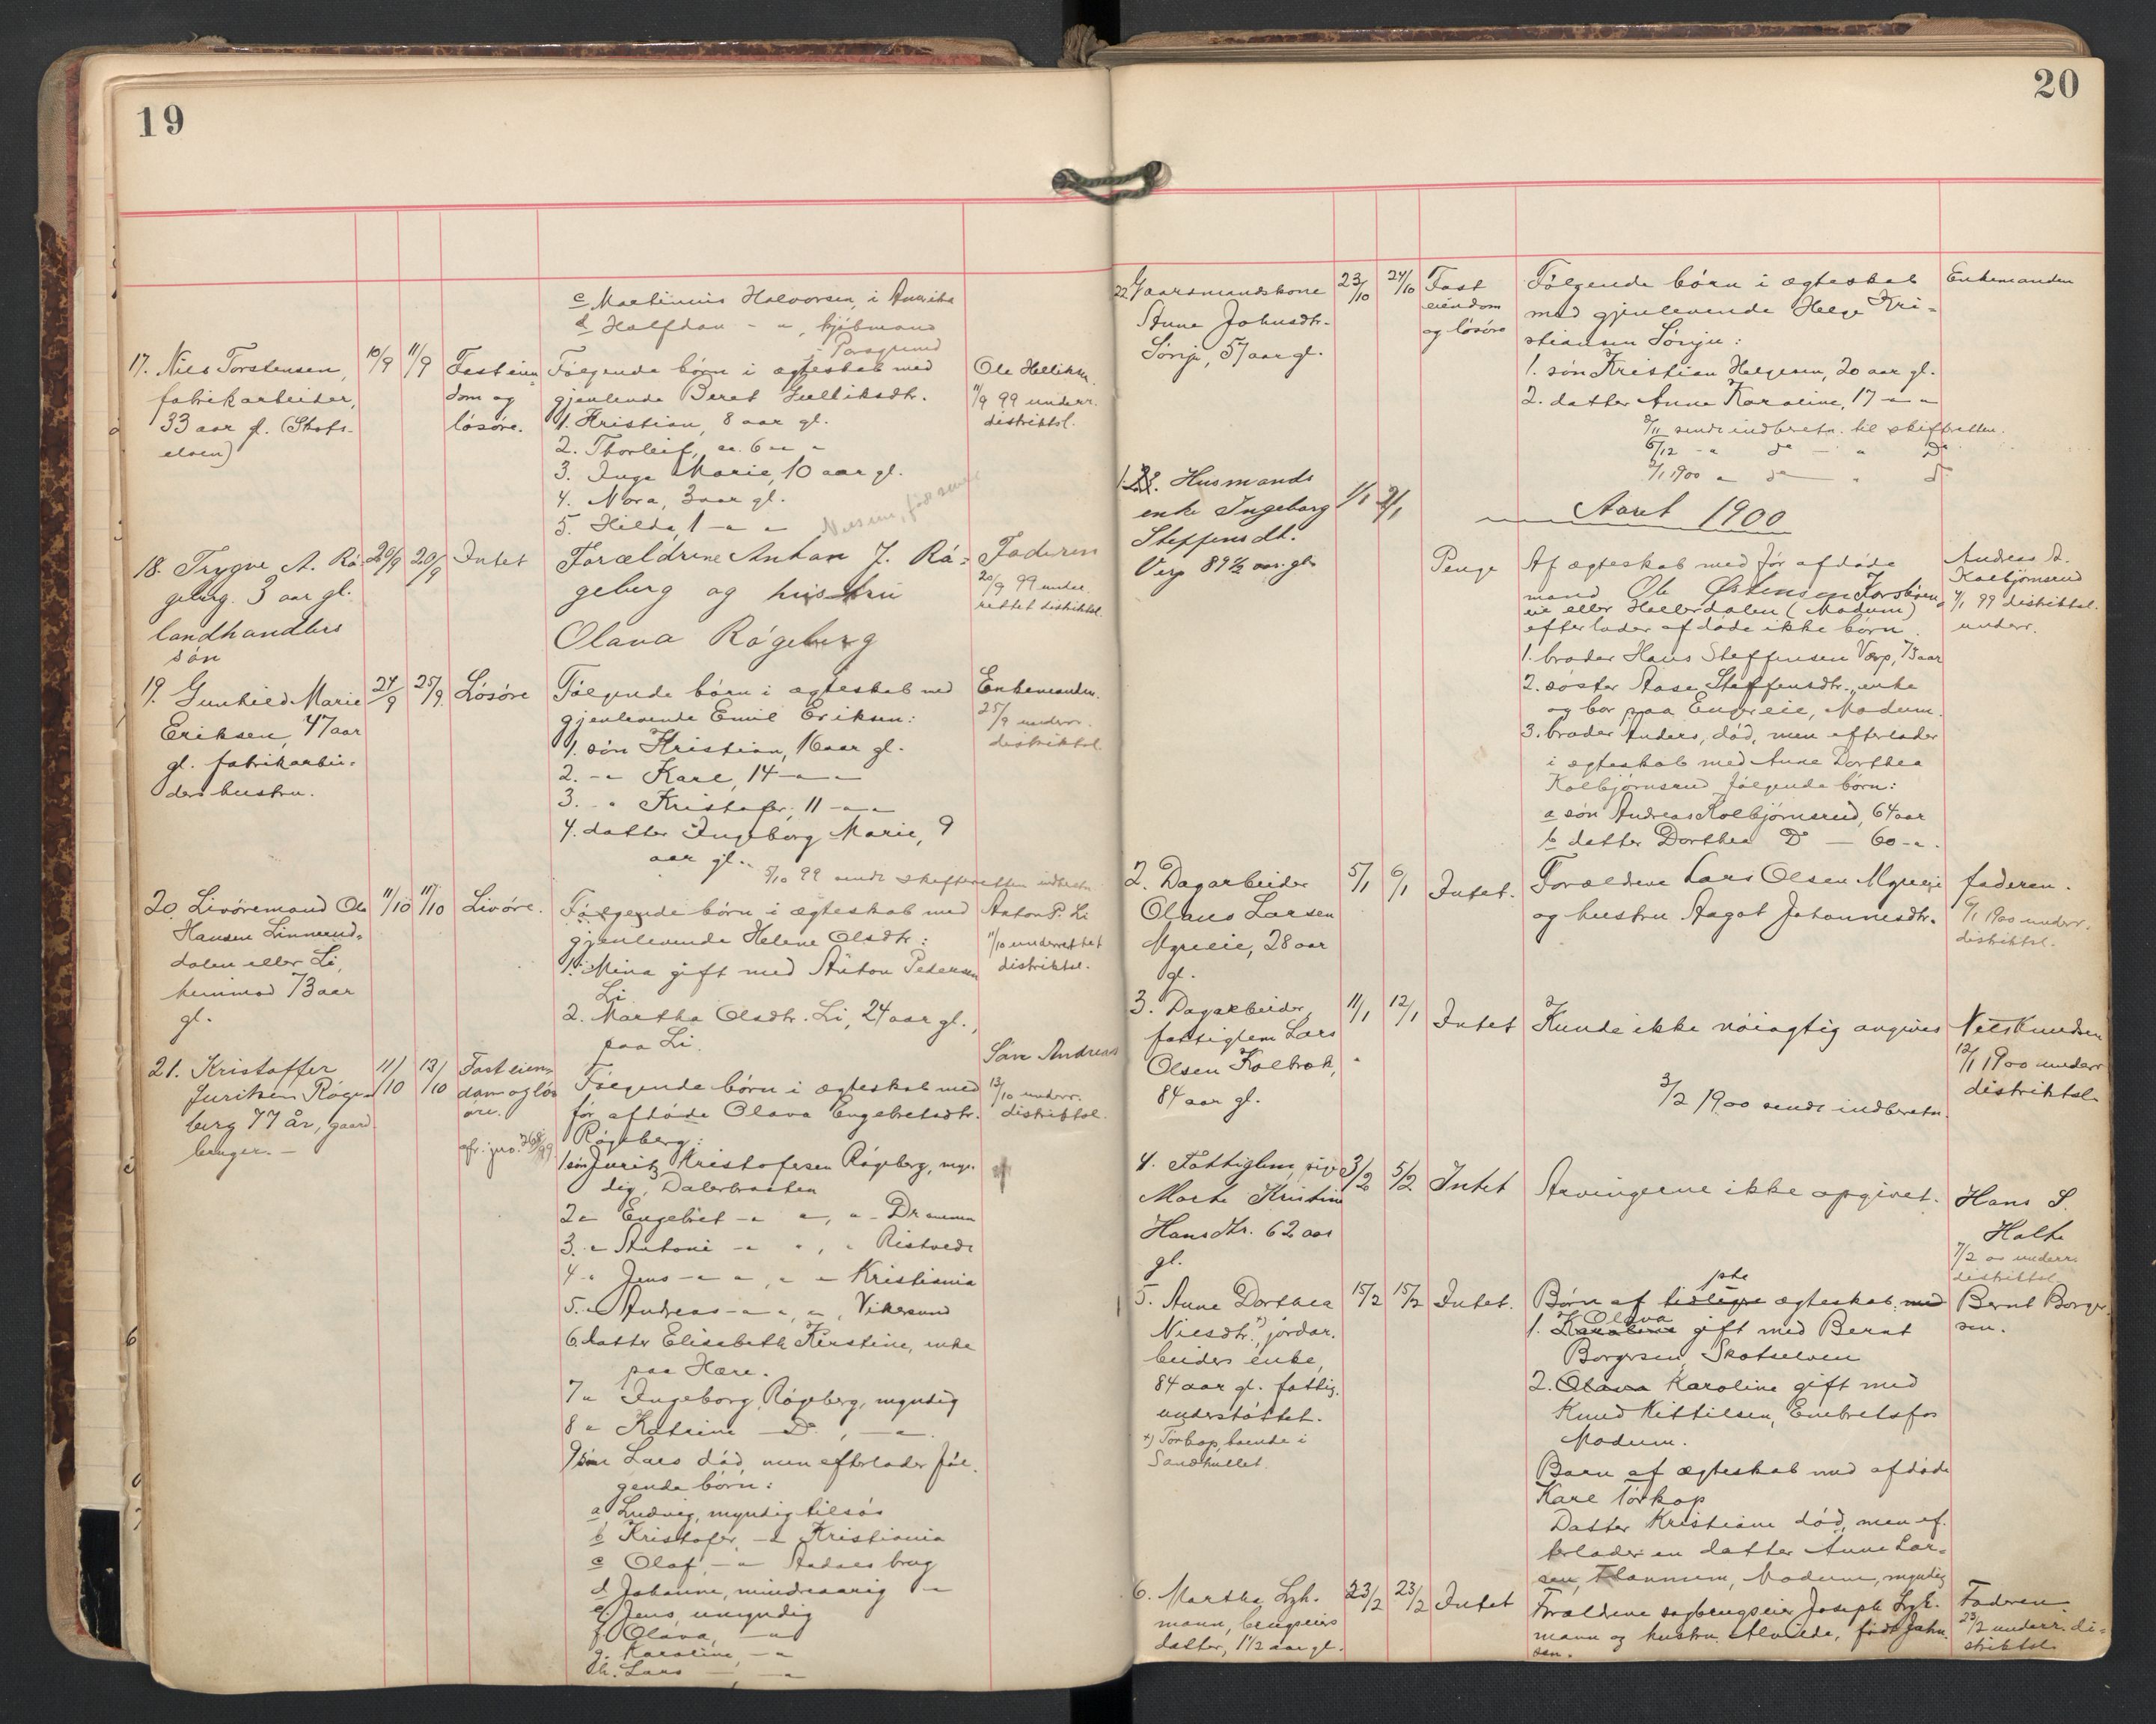 19
c Martinius Halvorsen, i Amerika
d Halfdan - " , kjøbmand
i Porsgrund
17. Nils Torstensen,
fabrikarbeider,
33 aar gl. (Skots-
elven)
10/9
11/9
Fast eien-
dom og
løsøre.
Følgende børn i ægteskab med
gjenlevende Beret Gulliksdtr.
1. Kristian, 8 aar gl.
2. Thorleif, ca. 6 " "
3. Inga Marie, 10 aar gl.
4. Nora, 3 aar gl.
5. Hilda, 1 - " "
Ole Helliksen.
11/9 99 underr.
distriktsl.
18. Trygve A. Rø-
geberg. 3 aar gl.
landhandlers
søn
20/9
20/9
Intet
Forældrene Anton J. Rø-
geberg og hustru
Olava Røgeberg
Faderen
20/9 99 under-
rettet distriktsl.
19. Gunhild Marie
Eriksen, 47 aar
gl. fabrikarbei-
ders hustru.
24/9
25/9.
Løsøre
Følgende børn i ægteskab med
gjenlevende Emil Eriksen:
1. søn Kristian, 16 aar gl.
2. - " Karl, 14 - " -
3. - " Kristofer, 11 - " "
4. datter Ingeborg Marie, 9
aar gl.
5/10 99 sendt skifteretten indberetn.
Enkemanden.
25/9 underr.
distriktsl.
20. Livøremand Ole
Hansen Linnerud-
dalen eller Li,
henimod 73 aar
gl.
11/10
11/10
Livøre.
Følgende børn i ægteskab med
gjenlevende Helene Olsdtr:
1. Mina gift med Anton Pedersen
Li
2. Martha Olsdtr. Li, 24 aar gl.,
paa Li.
Anton P. Li
11/10 underrettet
distriktsl.
21. Kristoffer
Juritsen Røge-
berg 77 år, gaard-
bruger. -
11/10
13/10
Fast eien-
dom og løs-
øre.
Følgende børn i ægteskab med
før afdøde Olava Engebretsdtr.
Røgeberg:
1. søn Juritz Kristofersen Røgeberg, myn-
dig, Dalerbraaten
2 " Engebret - " ", " - Drammen
3. " Antoni - " ", " Ristvedt
4 - " Jens - " ", " - Kristiania
5. " Andreas - " ", ", Vikersund
6. datter Elisabeth Kirstine, enke
paa Hære.
7 " Ingeborg Røgeberg, myndig
8 " Katrine Do, - "
9 søn Lars død, men efterlader føl-
gende børn:
a Ludvig, myndig tilsøs
b Kristofer, - " Kristiania
c Olaf, - " Aadals brug
d Johanne, mindreaarig - "
e. Jens, umyndig
f. Olava, - "
g. Karoline, - "
h. Lars - , - "
Søn Andreas
13/10 underr.
distriktsl.
20
22. Gaardmandskone
Anne Johnsdtr.
Sønju, 57 aar gl.
23/10
24/10
Fast
eiendom
og løsøre
Følgende børn i ægteskab
med gjenlevende Helge Kri-
stiansen Sønju:
1. søn Kristian Helgesen, 20 aar gl.
2. datter Anne Karoline, 17 " "
2/11 sendt indberetn. til skifteretten.
6/12 - " do - " Do
2/1 1900 " do " do
Enkemanden
Aaret 1900
1. 23. Husmands
enke Ingeborg
Steffensdt.
Verp 89 1/2 aar gl.
1/1
2/1
Penge
Af ægteskab med før afdøde
mand Ole Østensen Korsbøen
eie eller Hallerdalen (Modum)
efterlader afdøde ikke børn.
1. broder Hans Steffensen Verp, 73 aar
2. søster Aase Steffensdtr., enke
og bor paa Enger eie, Modum.
3. broder Anders, død, men efterlader
i ægteskab med Anne Dorthea
Kolbjørnsrud følgende børn:
a søn Andreas Kolbjørnsrud, 64 aar
b datter Dorthea Do - 60 - ".
Andreas A.
Kolbjørnsrud
4/1 99 distriktsl.
underr.
2. Dagarbeider
Olaus Larsen
Myreeie, 28 aar
gl.
5/1
6/1
Intet.
Forældrene Lars Olsen Myreeie
og hustru Aagot Johannesdtr.
faderen.
6/1 1900 underr.
distriktsl.
3. Dagarbeider,
fattiglem Lars
Olsen Kolbrok,
84 aar gl.
11/1
12/1
Intet
Kunde ikke nøiagtig angives
3/2 1900 sendt indberetn.
Nils Knudsen
12/1 1900 underr
distriktsl.
4. Fattiglem, pige
Marte Kristine
Hansdtr. 62 aar
gl.
3/2
5/2
Intet
Arvingerne ikke opgivet.
Hans S.
Holte
7/2 00 underr.
distriktsl.
5. Anne Dorthea
Nilsdtr. x), jordar-
beiders enke,
84 aar gl. fattig-
understøttet.
x) Torkop, boende i
Sandhullet.
15/2
15/2
Intet.
Børn af tidligere ægteskab, med
1. Karoline Olava gift med Bernt
Borgersen, Skotselven
2. Olava Karoline gift med
Knud Kittilsen, Embretsfos
Modum.
Barn af ægteskab med afdøde
Karl Torkop
Datter Kristiane død, men ef-
terlader en datter Anne Lar-
sen, Flannum, Modum, myndig
Bernt Borger-
sen.
6. Martha Lyk-
mann, brugseiers
datter, 1 1/2 aar gl.
23/2
23/2
Intet
Forældrene sagbrugseier Joseph Lyk-
mann og hustru Alvilde, født John-
sen.
Faderen
23/2 underr. di-
striktsl.